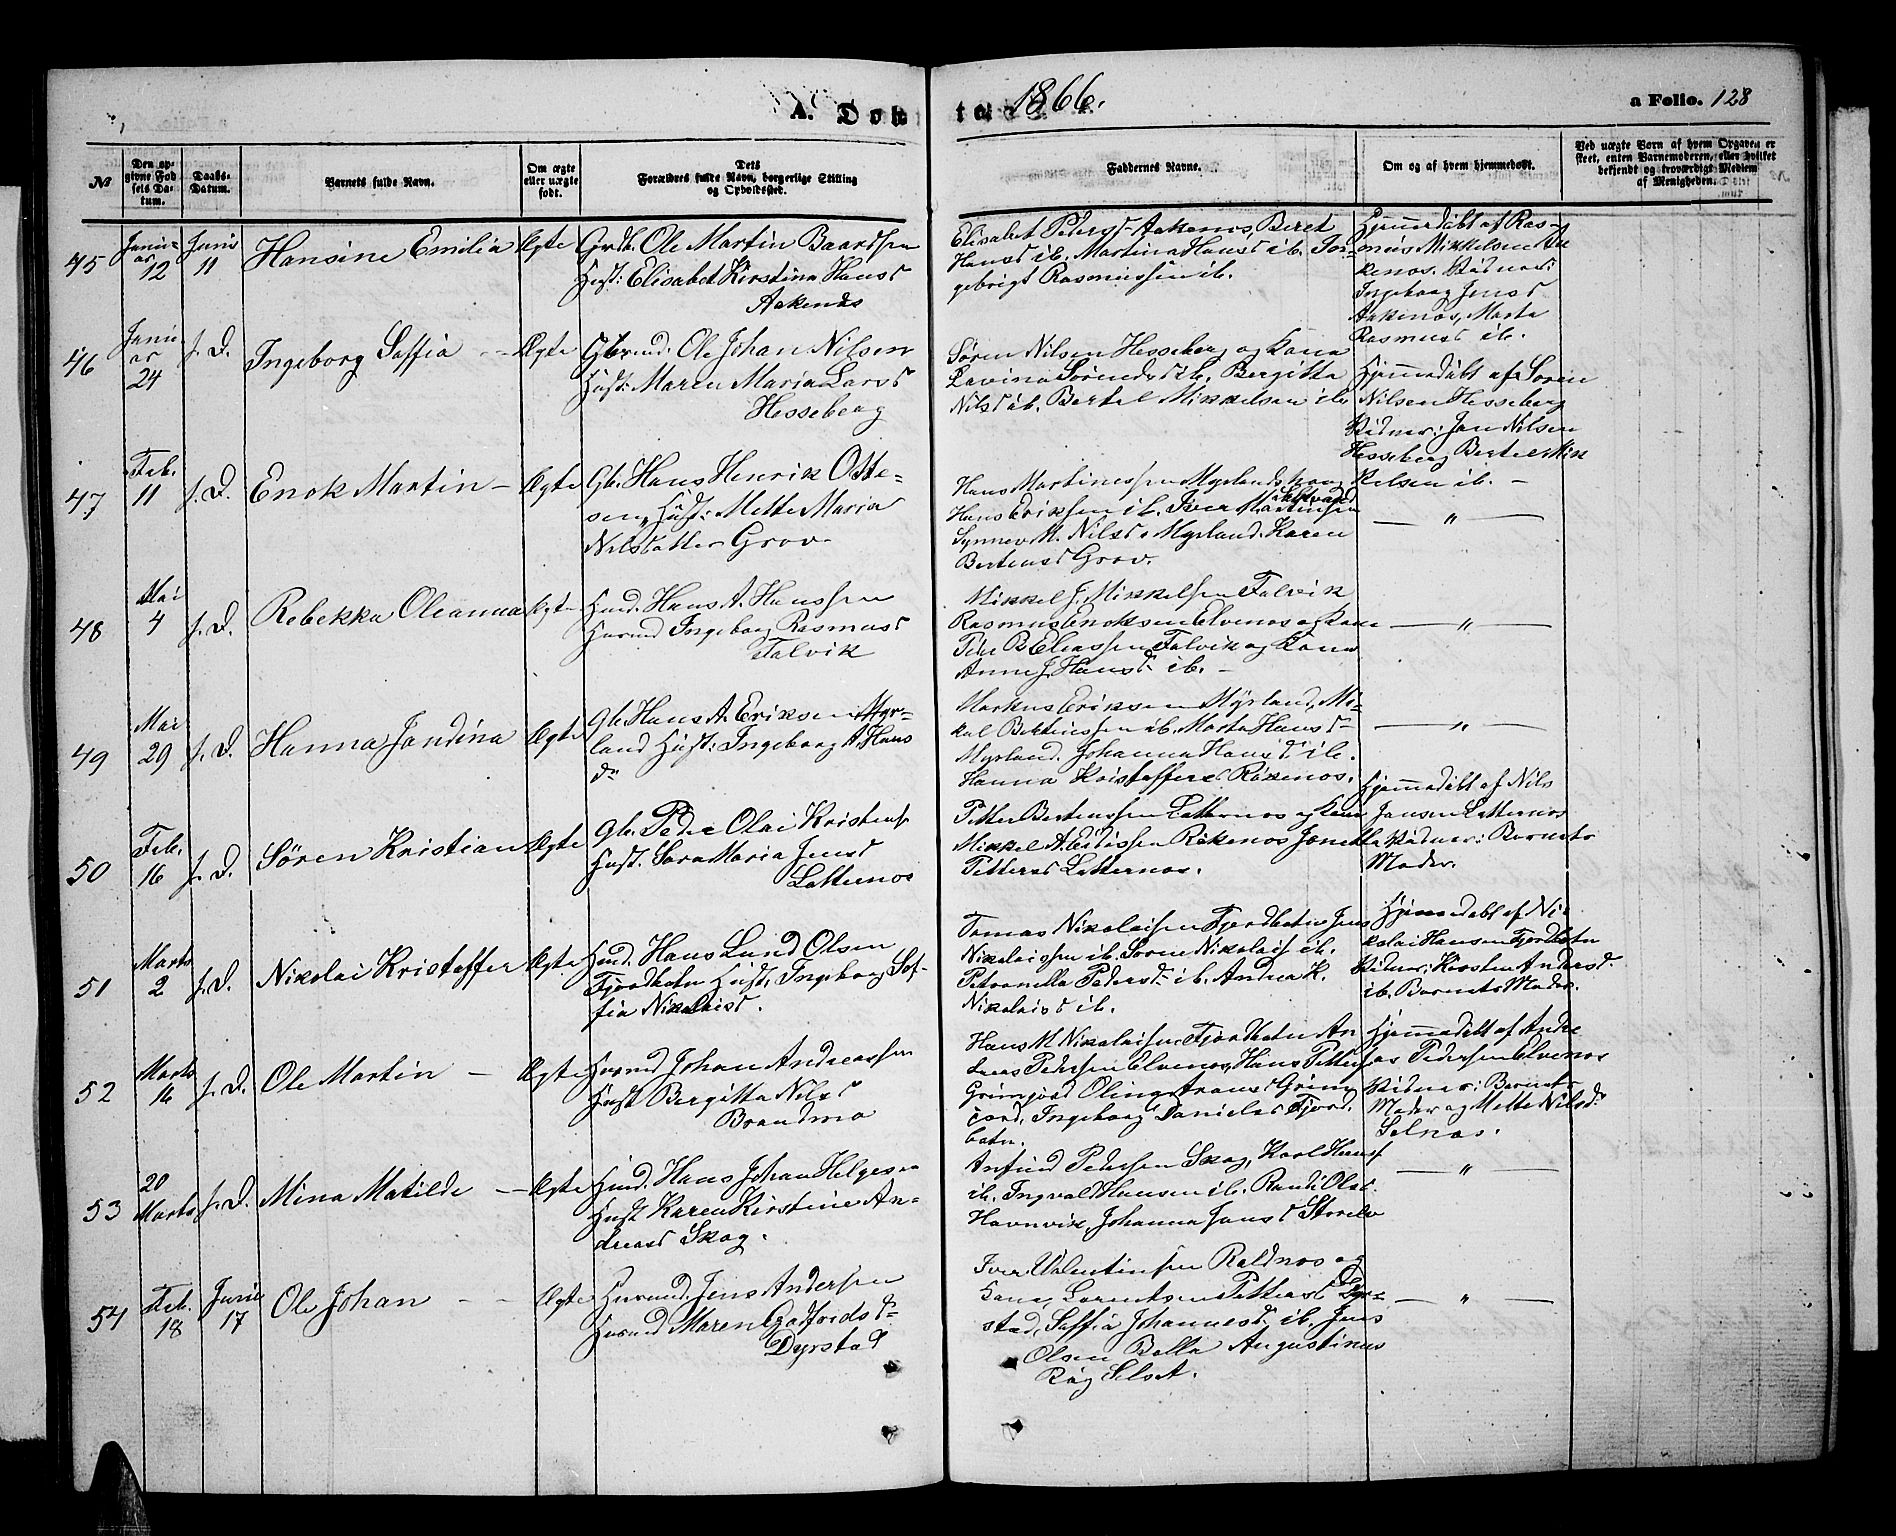 A. Døbte. 1866.
a Folio. 128
No
Den op-
givne Fød
sels Da-
tum.
Daabs-
Datum.
Barnets fulde Navn.
Om ægte
eller uægte
født.
Dets
Forældres fulde Navn, borgerlige Stilling
og Opholdssted.
Faddernes Navne.
Om og af hvem hjemmedøbt.
Ved uægte Børn af hvem Opgaven er
skeet, enten Barnemoderen, eller hvilket
bekjendt og troværdigt Medlem
af Menigheden.
45
Janu-
ar
12
Juni
11
Hansine Emilia
Ægte
Grdb. Ole Martin Baardsen
Hust: Elisabet Kirstina Hansd
Aakenæs
Elisabet Pedersd Aakenos, Beret
Hansd ib. Martina Hansd ib. Tor-
gebrigt Rasmussen ib.
Hjemmedøbt af Ras-
mus Mikkelsen Aa
kenos. Vidner:
Ingeborg Jensd
Aakenos, Marta
Rasmusd ib.
46
Janu
ar
24
s. D.
Ingeborg Saffia
Ægte
Ole Johan Nilsen
Hust: Maren Maria Larsd
Hesseberg
Søren Nilsen Hesseberg og Kona
Lavina Sørensd ib. Bergitta
Nilsd ib. Bertel Mikkelsen ib
Hjemmedøbt af Søren
Nilsen Hesseberg
Vidner: Jan Nilsen
Hesseberg Bertel Mik
kelsen ib. -
47
Feb.
11
s. D.
Enok Martin -
Ægte
Gb. Hans Henrik Otte-
sen, Hust: Mette Maria
Nilsdatter Grov
Hans Martinessen Myrlandshaug
Hans Eriksen ib. Iver Martinsen
Synnev M. Nilsd Myrland. Karen
Bertensd Grov.
— " —
48
Mai
4
s. D.
Rebekka Oleanna
Ægte
Husmd. Hans A. Hanssen
Ingeborg Rasmusd
Falvik
Mikkel J. Mikkelsen Falvik
Rasmus Enoksen Elvenos og Kone
Peder B Eliassen Falvik og Kone
Anne J. Hansd ib. -
— " —
49
Mai
29
s. D.
Hanna Jandina
Ægte
Gb. Hans A. Eriksen Myr-
land Hust: Ingeborg A. Hans
d
Markus Eriksen Myrland, Mi-
kal Bertinssen ib. Marta Hansd
Myrland. Johanna Hansd ib.
Hanna Kristoffersd Rikenos.
— " —
50
Feb.
16
s. D.
Søren Kristian
Ægte
Gb. Peder Olai Kristens
Hust. Sara Maria Jensd
Latternos
Petter Bertenssen Latternos og Kone
Mikkel A. Rikenos Jonetta
Pettersd Latternos.
Hjemmedøbt af Nils
Jansen Latternos
Vidner: Barnets
Moder.
51
Marts
2
s. D.
Nikolai Kristoffer
Ægte
Husmd. Hans Lund Olsen
Fjordbotn Hust. Ingeborg Sof-
fia Nikolaisd.
Tomas Nikolaisen Fjordbotn Jens
Nikolaissen ib. Søren Nikolais ib.
Petronella Pedersd ib. Andrea K.
Nikolaisd ib.
Hjemmedøbt af Ni-
kolai Hansen Fjordbotn
Vidner: Kirsten Andersd
ib. Barnets Moder.
52
Marts
16
s. D.
Ole Martin -
Ægte
Husmd Johan Andreassen
Hust Bergitta Nilsd
Brandmo
Hans M. Nikolaisen Fjordbotn An
dreas Pedersen Elvenos, Hans Petters
Grimsfjord Grims
fjord, Ingeborg Danielsd Fjord.
botn.
Hjemmedøbt af Andre
as Pedersen Elvenos
Vidner: Barnets
Moder og Mette Nilsd
Selnos.
53
20
Marts
s. D.
Mina Matilde
Ægte
Husmd. Hans Johan Helgesen
Hust Karen Kirstine An-
dreasd Skog.
Anfind Pedersen Skog, Karl Hans
ib. Ingvald Hansen ib. Randi Olsd.
Havnvik, Johanna Jansd Storelv
— " —
54
Feb.
18
Junie
17
Ole Johan
Ægte
Husmd. Jens Andersen
Maren Godfredsd
Dyrstad
Iver Valentinsen Raldnos og
Kone, Lorentsen Dyr-
stad, Saffia Johannesd. ib. Jens
Olsen Bolla Augustinus
Selset.
— " —